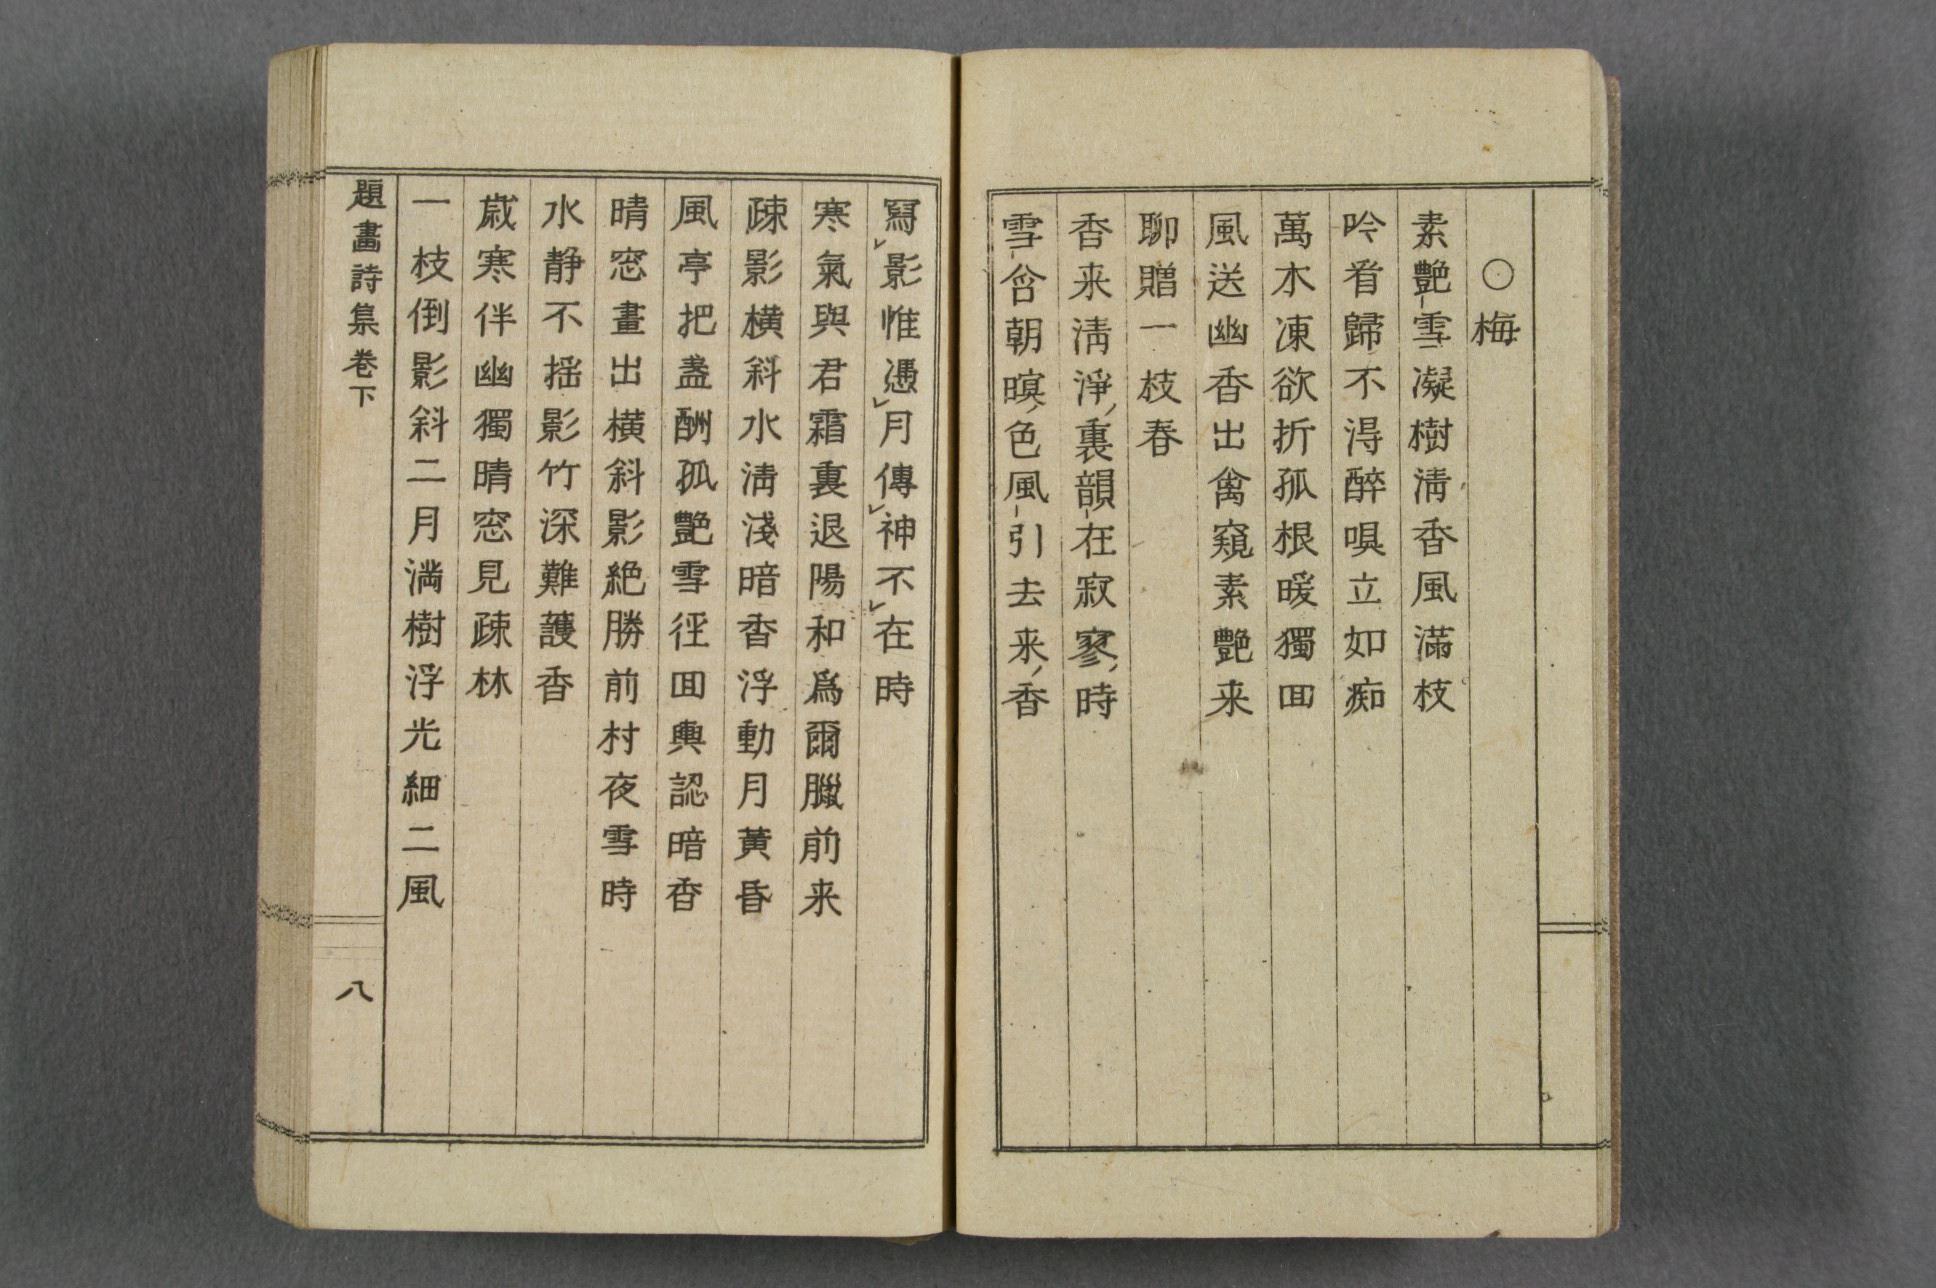 ○梅
素艶雪凝樹淸香風滿枝
吟看歸不得醉嗅立如痴
萬木凍欲折孤根暖獨囬
風送幽香出禽窺素艶来
聊贈一枝春
香来淸淨裏韻在寂寥時
雪含朝暝色風引去来香
寫影惟憑月傳神不在時
寒氣與君霜裏退陽和爲爾臘前来
疎影横斜水淸淺暗香浮動月黃昏
風亭把盞酬孤艶雪徑囬輿認暗香
晴窓畫出横斜影絶勝前村夜雪時
水静不揺影竹深難護香
歳寒伴幽獨晴窓見疎林
一枝倒影斜二月満樹浮光細二風
題畵詩集卷下
八